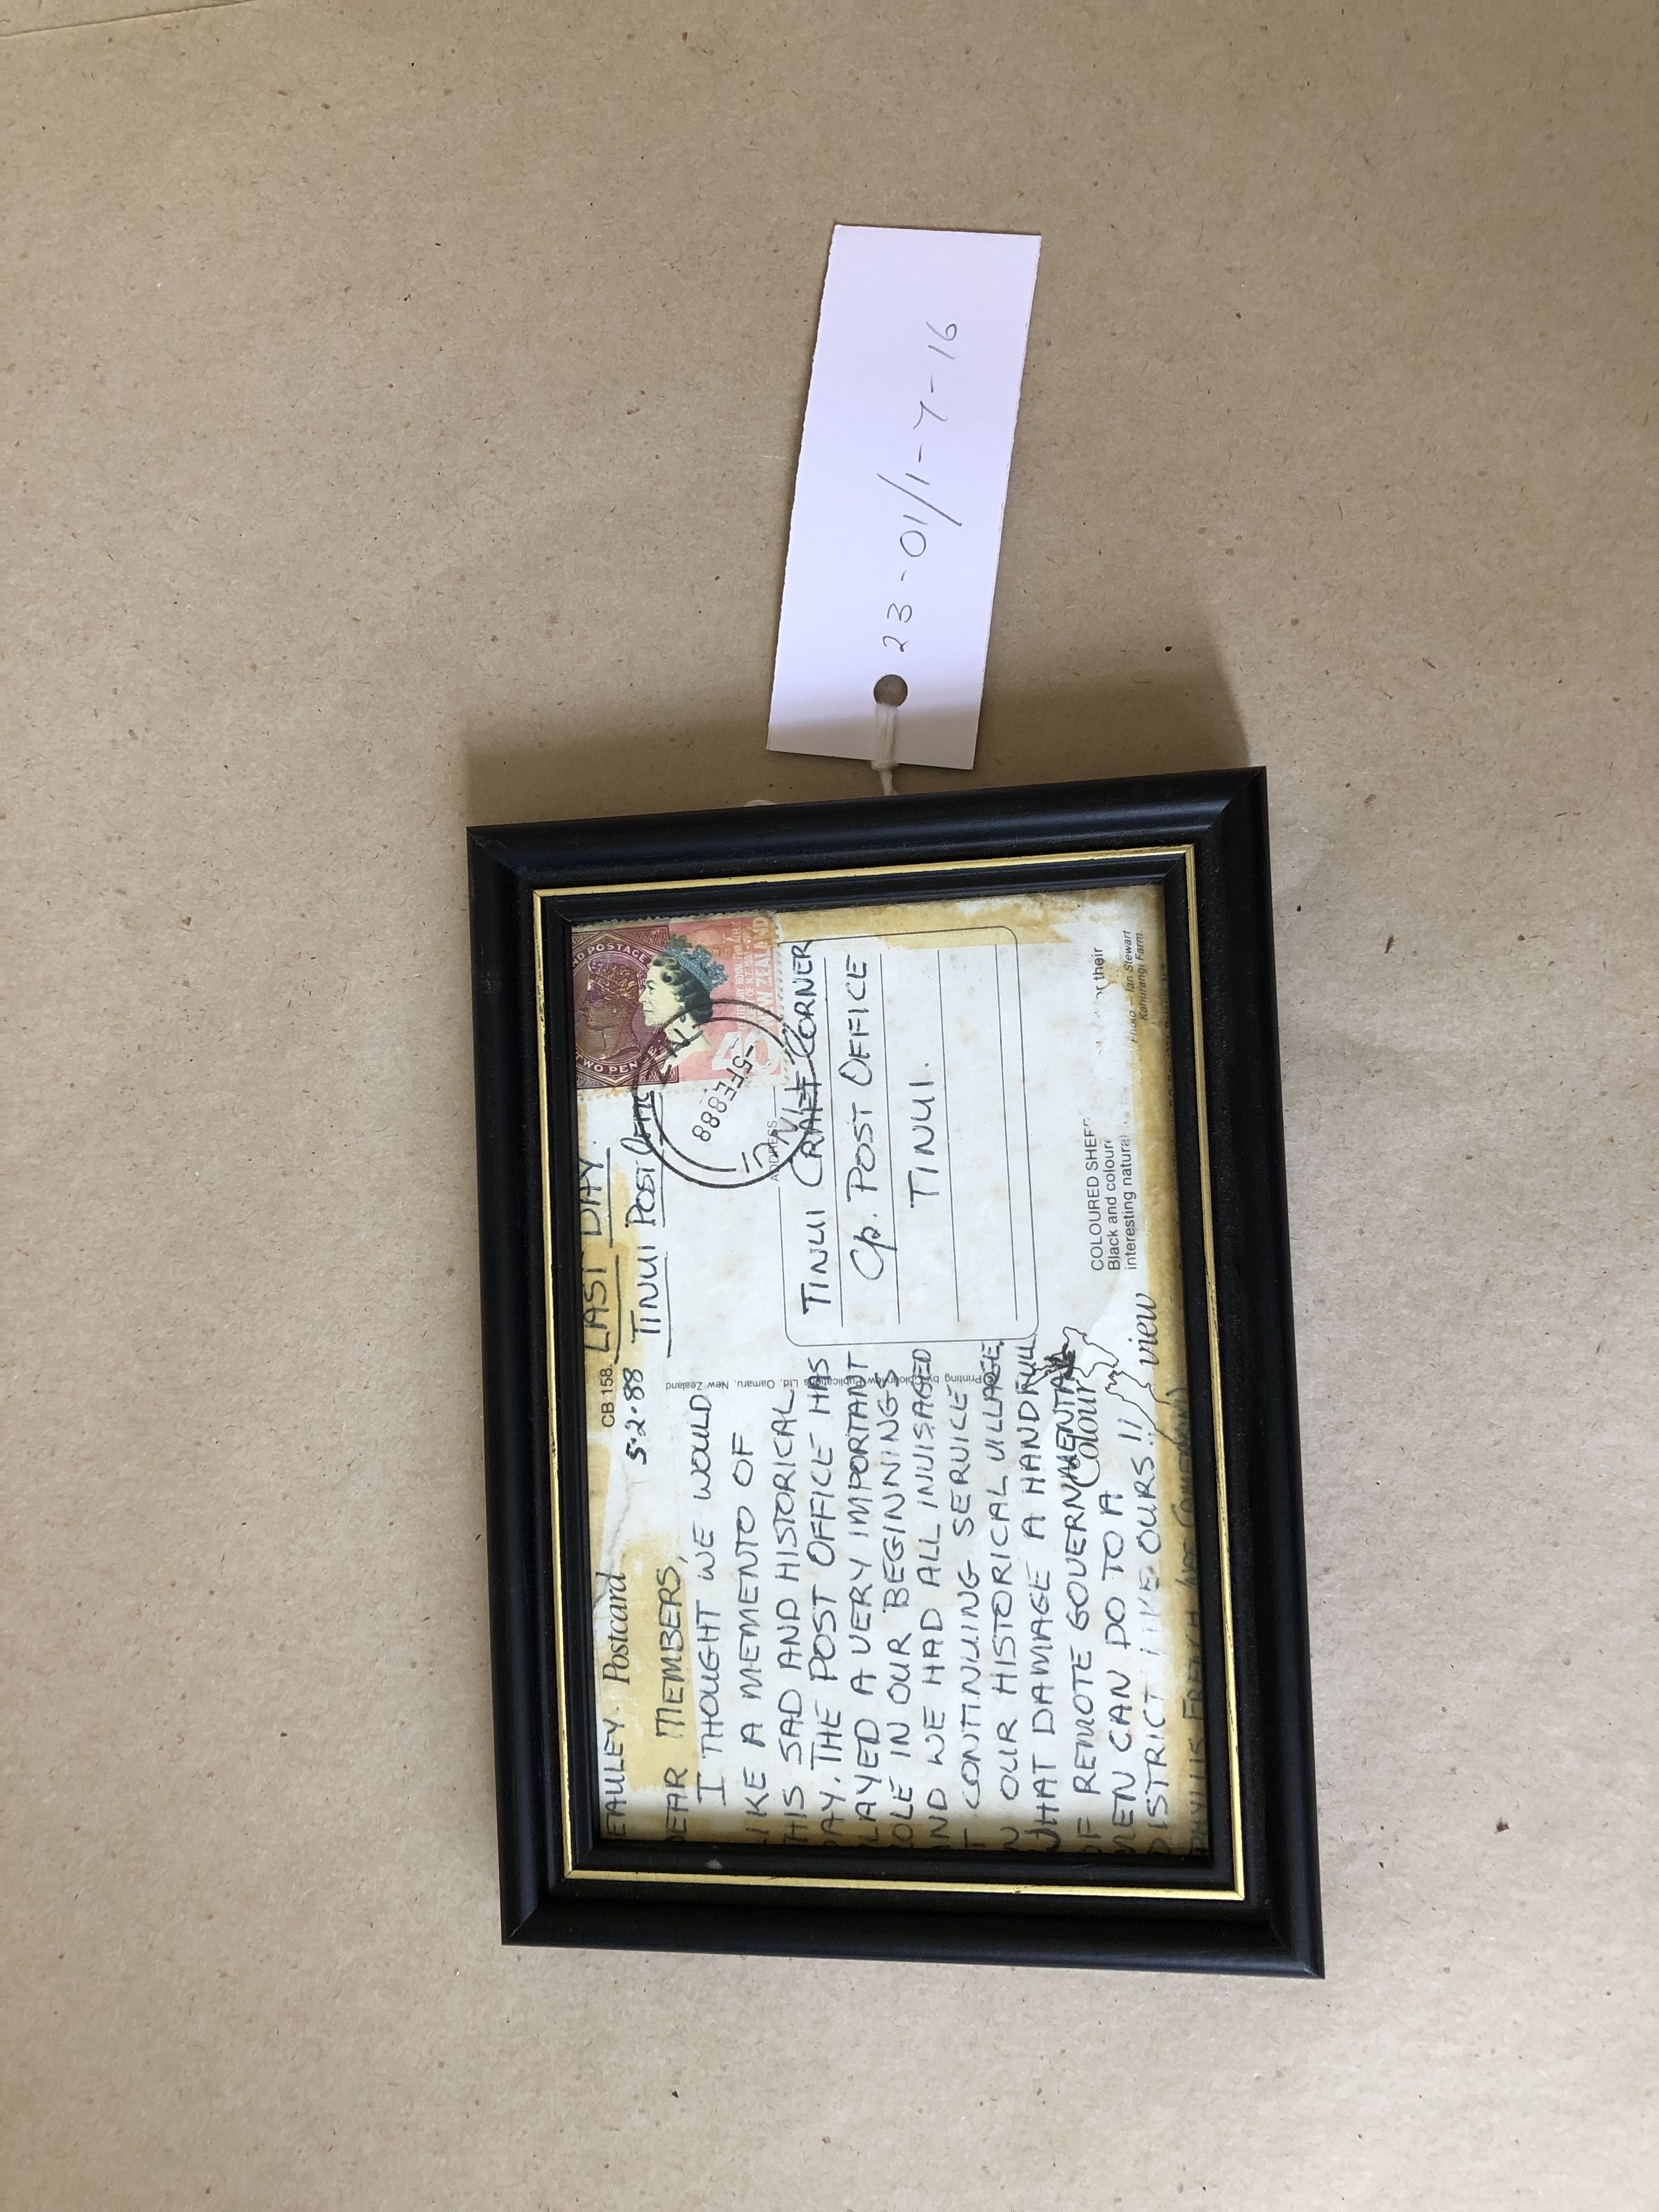 EAULEY. Postcard
CB 158. LAST DAY.
5·2·88 TINUI POST OFFIC
DEAR MEMBERS,
I THOUGHT WE WOULD
LIKE A MEMENTO OF
THIS SAD AND HISTORICAL
DAY. THE POST OFFICE HAS
LAYED A VERY IMPORTANT
ROLE IN OUR BEGINNINGS
AND WE HAD ALL INVISAGED
T CONTINUING SERVICE
N OUR HISTORICAL VILLAGE.
WHAT DAMAGE A HANDFULL
OF REMOTE GOVERNMENTAL
MEN CAN DO TO A
DISTRICT LIKE OURS!!
PHYLLIS FRENCH (NEE CAMERON)
Printing by Ltd. Oamaru, New Zealand
Colour
view
TWO PEN
POSTAGE
CENTENARY ROYAL PHILATELIC
OF N.Z. 1888-
NEW ZEALAND
-5FE888
TINUI
ADDRESS
TINUI CRAFT CORNER
C/o. POST OFFICE
TINUI.
COLOURED SHEEP
Black and coloure or their
interesting natural
Photo — Ian Stewart
Kahurangi Farm.
23-01/1-7-16